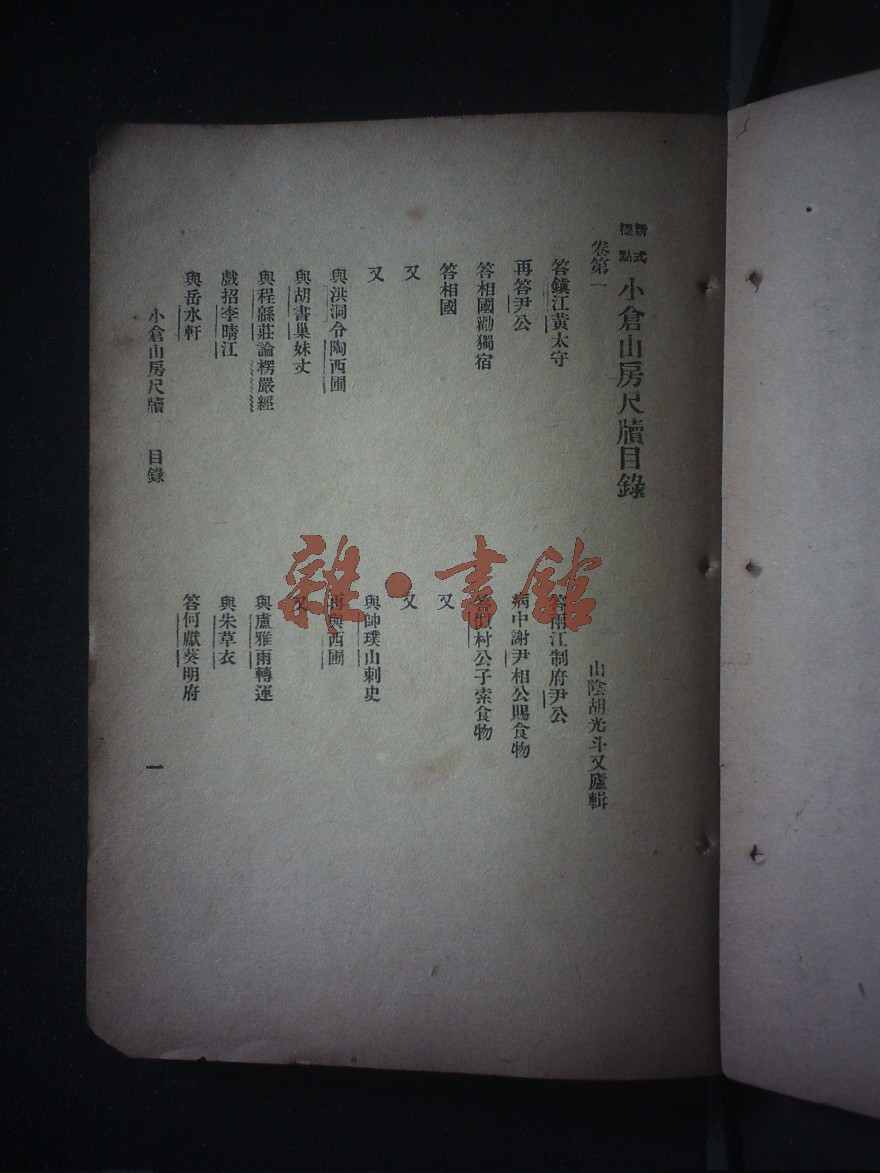 新式標點 小倉山房尺牘目錄
卷第一 山陰胡光斗又廬輯
答鎮江黃太守 答兩江制府尹公
再答尹公 病中謝尹相公賜食物
答相國勸獨宿 答村公子索食物
答相國 又
又 又
又 與帥璞山刺史
與洪洞令陶西圃 再與西圃
與胡書巢妹丈 又
與程緜莊論楞嚴經 與盧雅雨轉運
戲招李晴江 與朱草衣
與岳水軒 答何獻葵明府
小倉山房尺牘 目錄 一
雜·書館